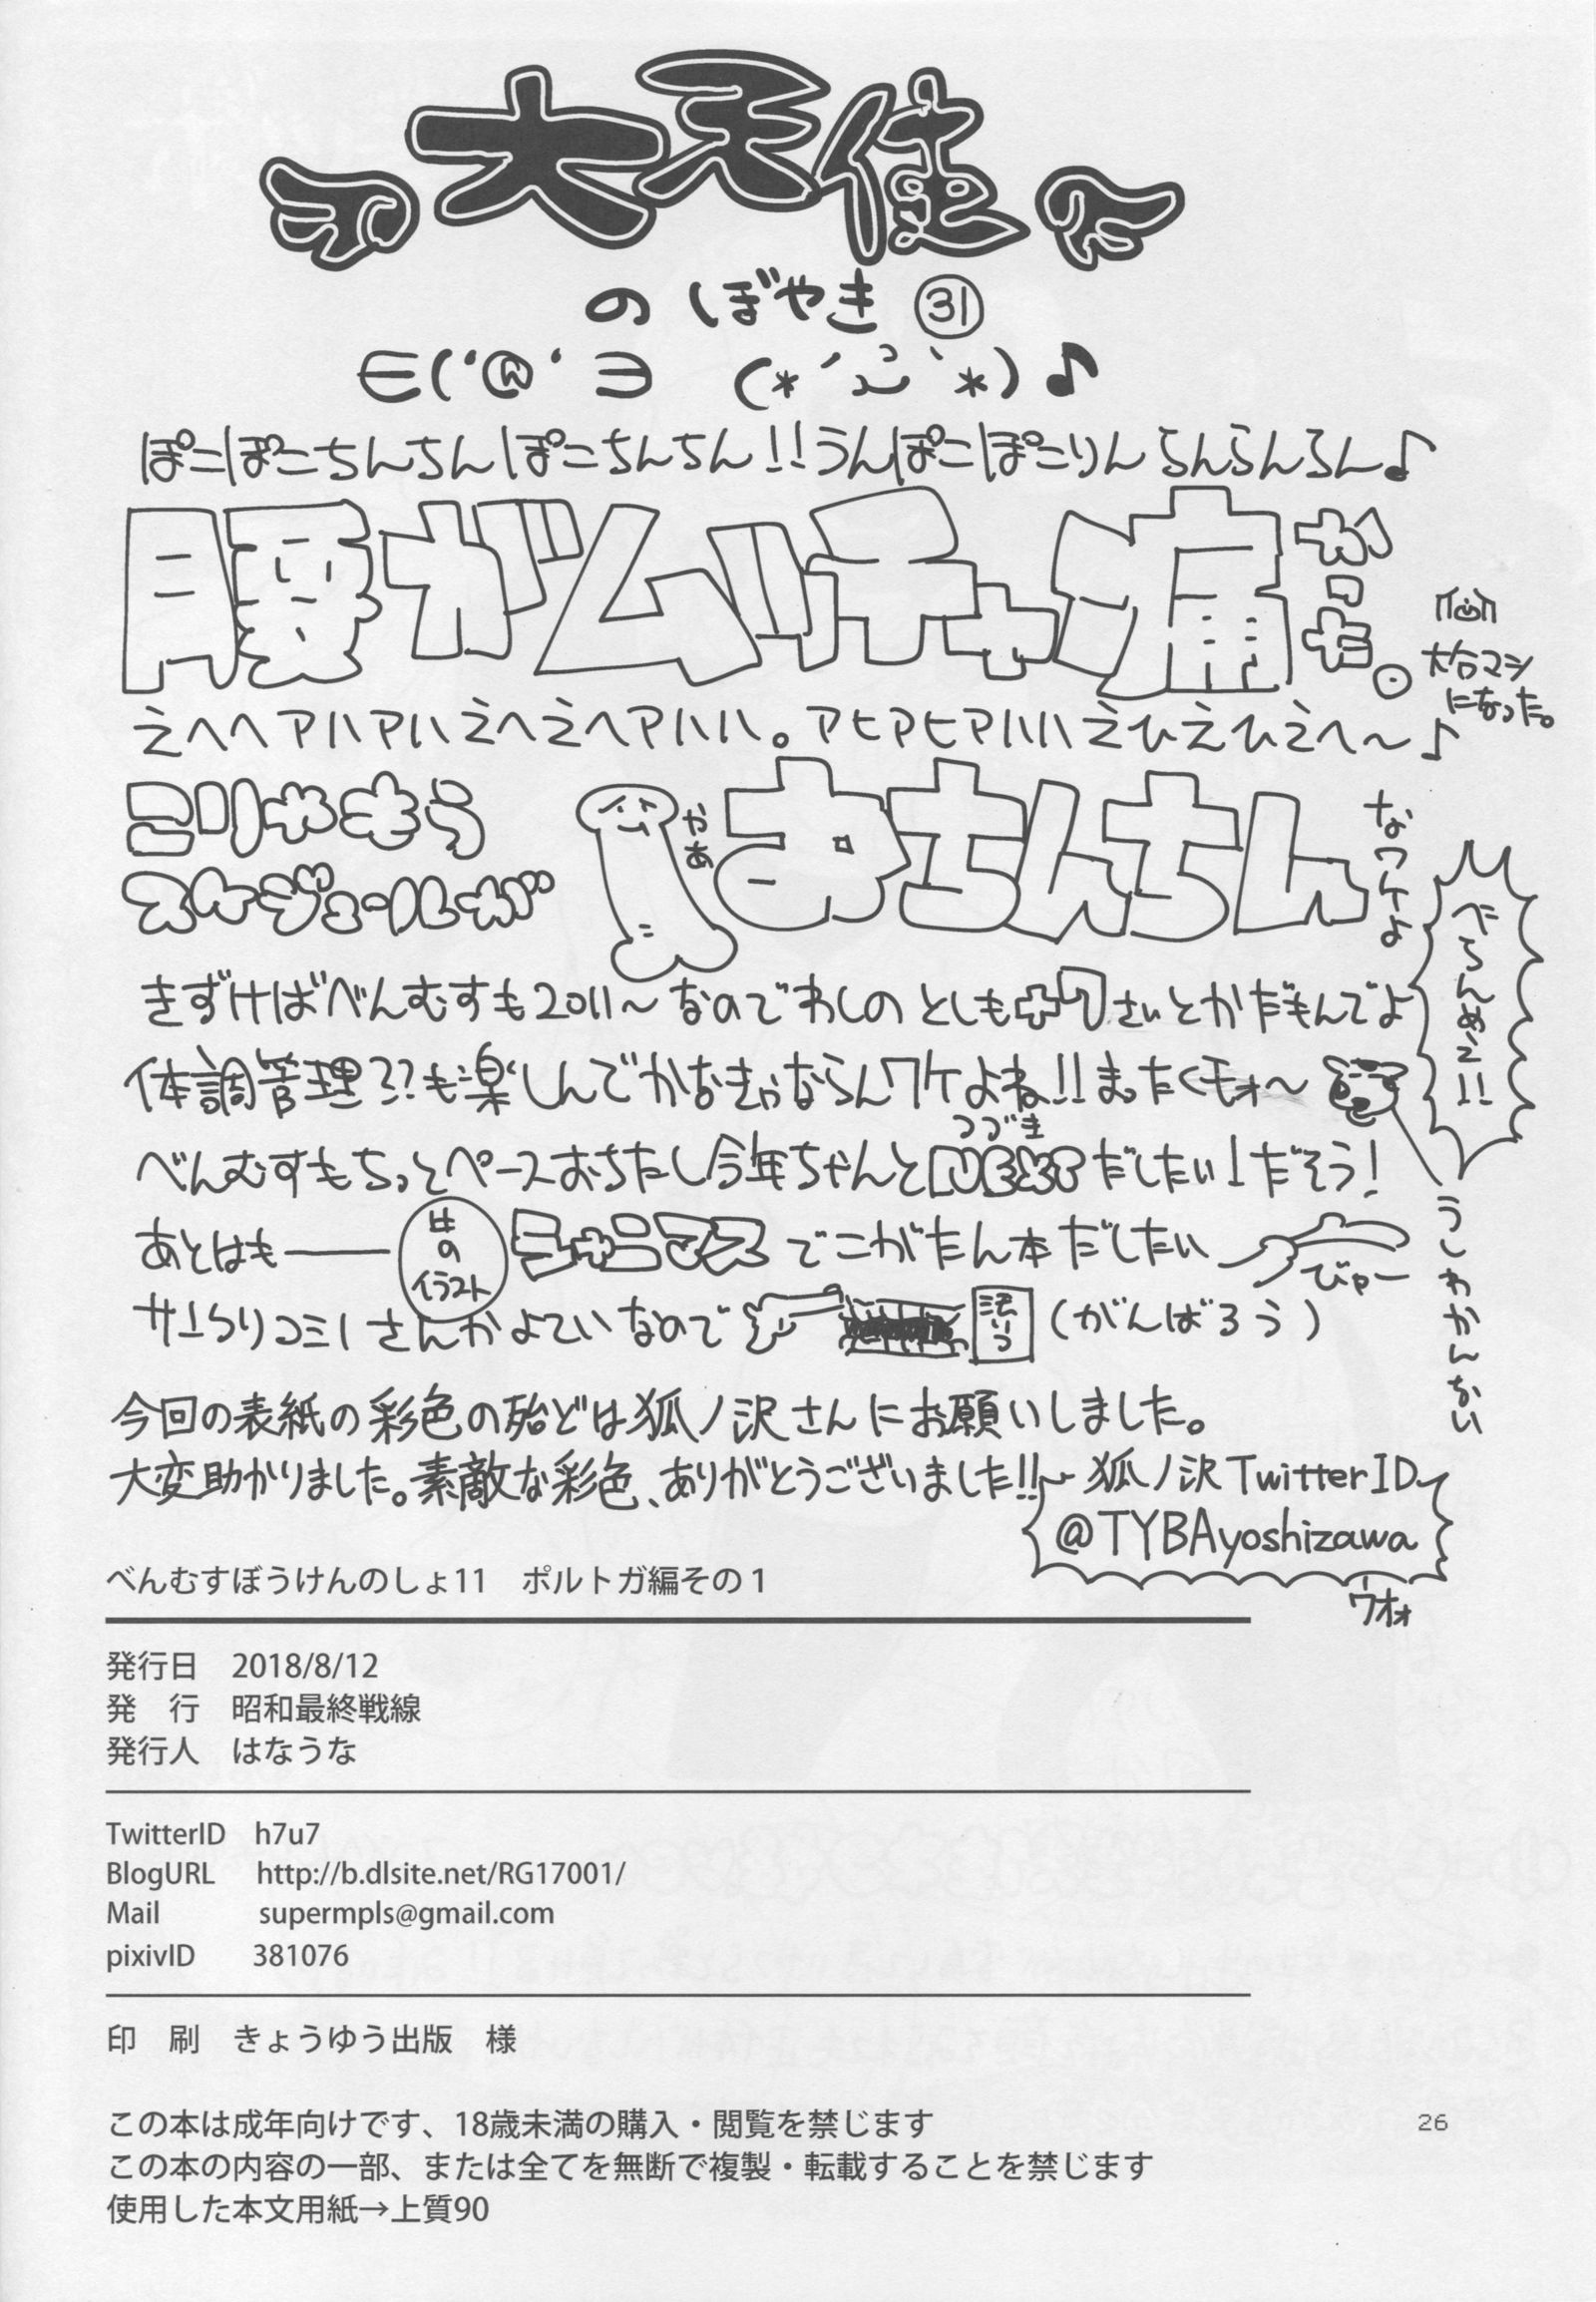 大天使
のぼやき ㉛
∈('@'∋ (*´ ｀*)♪
ぽこぽこちんちんぽこちんちん!!うんぽこぽこりんらんらんらん♪
腰ガムッチャ痛かった。
大分マシ
になった。
えへへアハアハえへえへアハハハ。アヒアヒアハハハえひえひえへ〜♪
こりゃもう
スケジュールが
やあ
おちんちん
なワケよ
べらんめえ!!
きずけばべんむすも2011〜なのでわしのとしも さいとかだもんでよ
体調管理??も楽しんでかなきゃならんワケよね!!まったくモォ〜
うしわかんない
つづき
べんむすもちっとペースおちたし今年ちゃんとNEXTだしたい!だそう!
あとはも――
イラスト
シャニマスでこがたん本だしたい
びゃー
サークりコミ1さんかよていなので
(がんばろう)
今回の表紙の彩色の殆どは狐ノ沢さんにお願いしました。
大変助かりました。素敵な彩色、ありがとうございました!!
狐ノ沢TwitterID
@TYBAyoshizawa
ウオォ
べんむすぼうけんのしょ11　ポルトガ編その1
発行日　2018/8/12
発　行　昭和最終戦線
発行人　はなうな
TwitterID　h7u7
BlogURL　http://b.dlsite.net/RG17001/
Mail　supermpls@gmail.com
pixivID　381076
印　刷　きょうゆう出版　様
この本は成年向けです、18歳未満の購入・閲覧を禁じます
この本の内容の一部、または全てを無断で複製・転載することを禁じます
使用した本文用紙→上質90
26